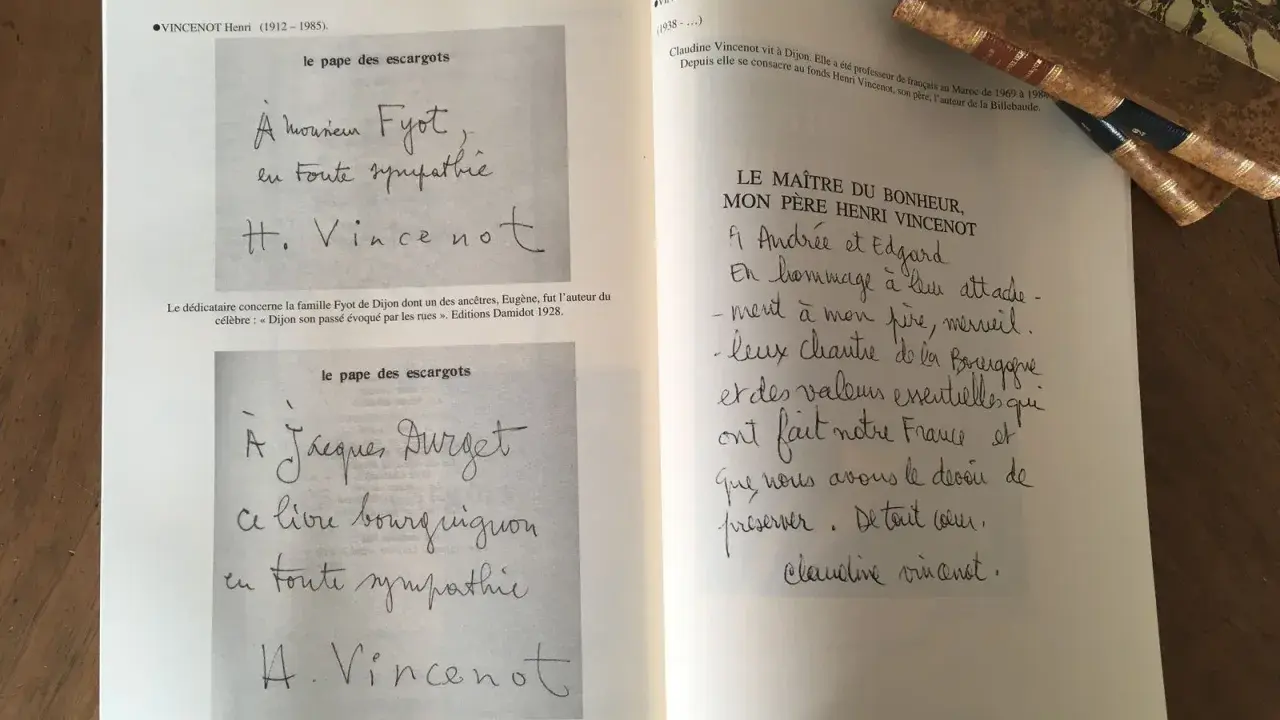 ●VINCENOT Henri (1912 – 1985).
le pape des escargots
À Monsieur Fyot,
en toute sympathie
H. Vincenot
Le dédicataire concerne la famille Fyot de Dijon dont un des ancêtres, Eugène, fut l'auteur du
célèbre : « Dijon son passé évoqué par les rues ». Editions Damidot 1928.
le pape des escargots
À Jacques Durget
ce livre bourguignon
en toute sympathie
H. Vincenot
(1938 - …)
Claudine Vincenot vit à Dijon. Elle a été professeur de français au Maroc de 1969 à
Depuis elle se consacre au fonds Henri Vincenot, son père, l'auteur de la Billebaude.
LE MAÎTRE DU BONHEUR,
MON PÈRE HENRI VINCENOT
A Andrée et Edgard
En hommage à leur attache-
-ment à mon père, merveil.
-leux chantre de la Bourgogne
et des valeurs essentielles qui
ont fait notre France et
que nous avons le devoir de
préserver. De tout cœur.
Claudine Vincenot.